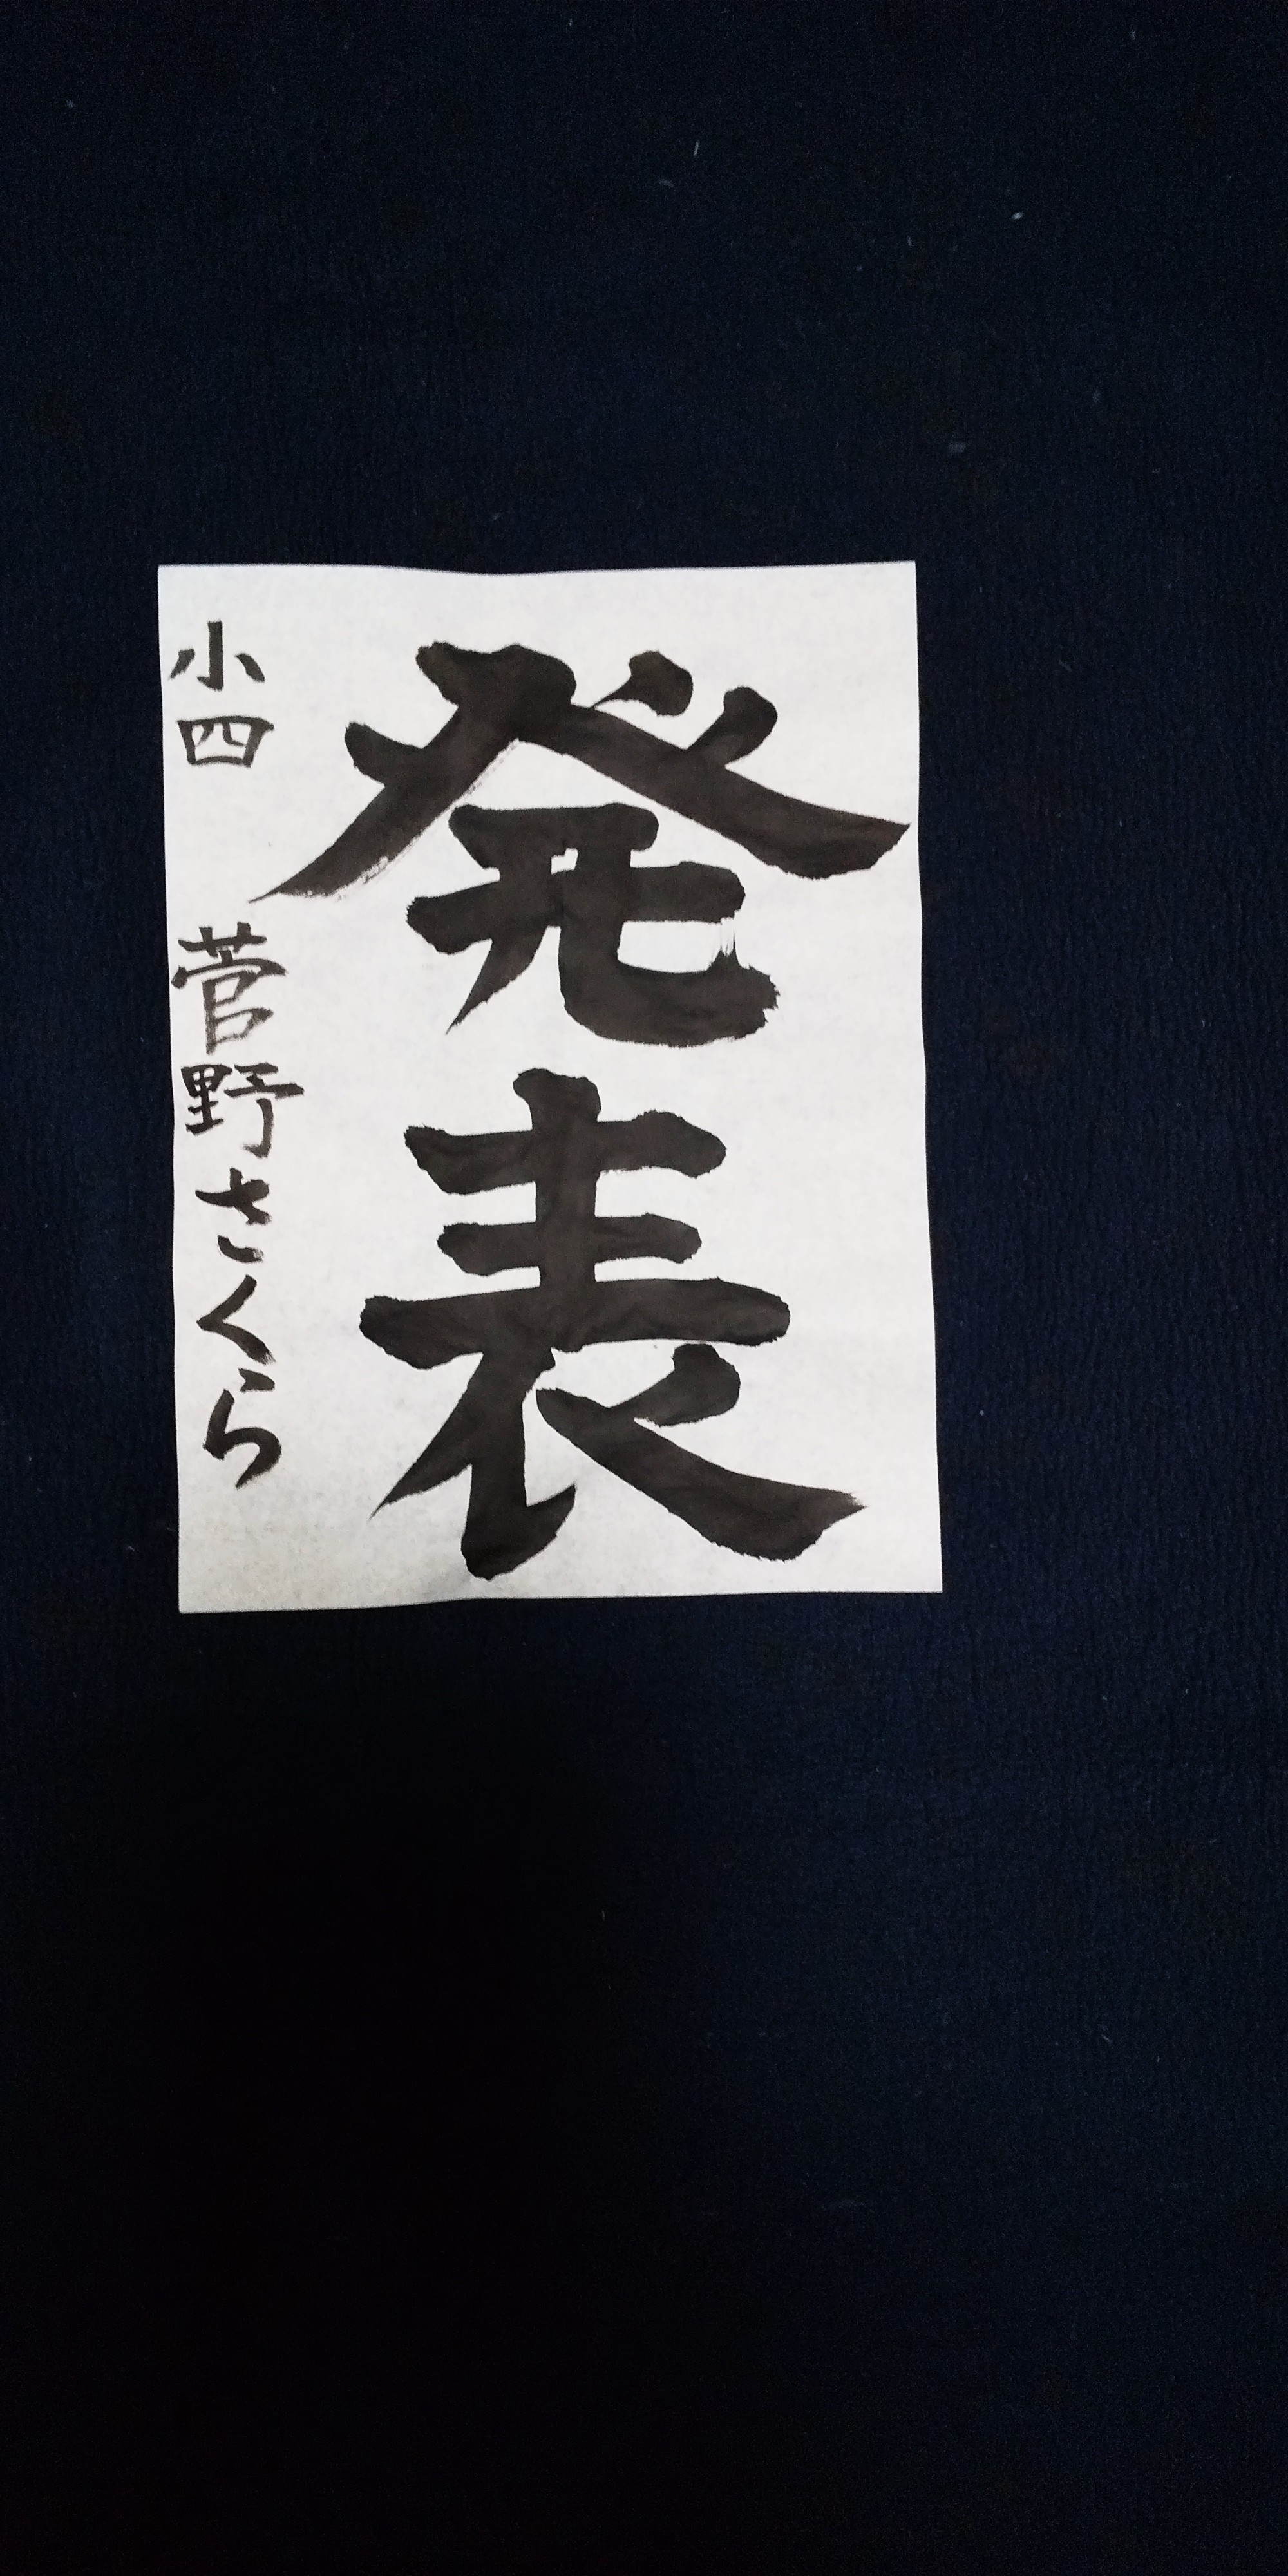 発表
小四 菅野さくら